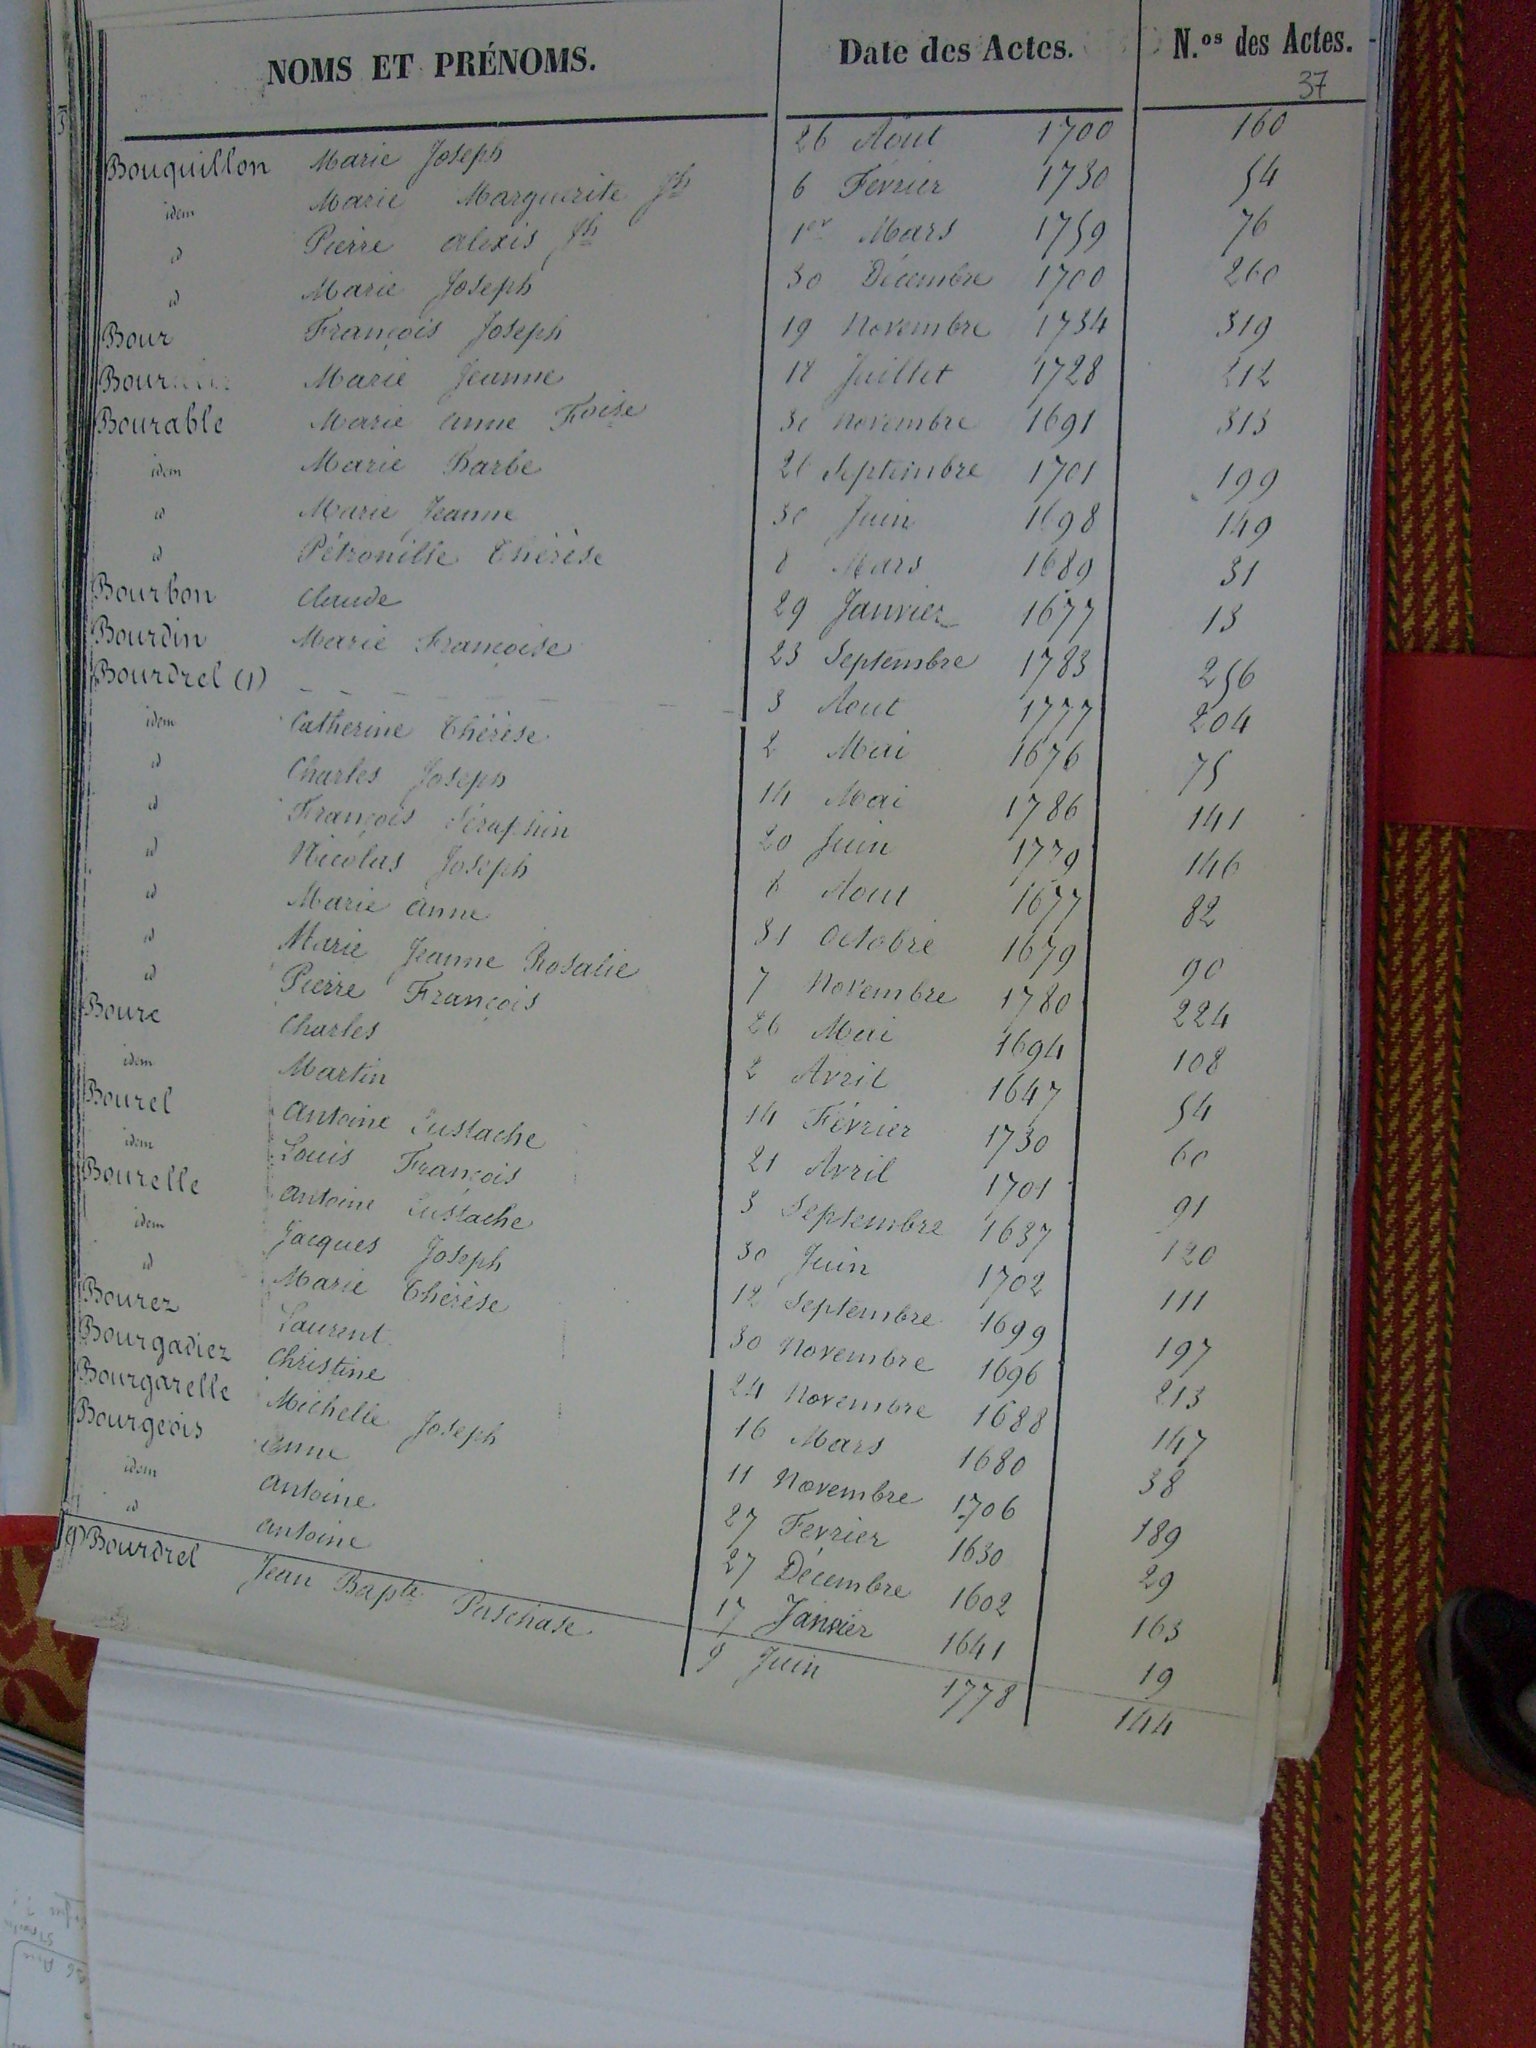 NOMS ET PRÉNOMS. Date des Actes. N.os des Actes.
37
Bouquillon Marie Joseph 26 Aout 1700 160
idem Marie Marguerite Jh 6 Février 1730 54
id Pierre Alexis Jh 1er Mars 1759 76
id Marie Joseph 30 Décembre 1700 260
Bour François Joseph 19 Novembre 1734 319
Marie Jeanne 18 Juillet 1728 212
Bourable Marie Anne Foise 30 Novembre 1691 313
idem Marie Barbe Septembre 1701 199
id Marie Jeanne 30 Juin 1698 149
id Pétronille Thérèse 8 Mars 1689 31
Bourbon Claude 29 Janvier 1677 13
Bourdin Marie Françoise 23 Septembre 1783 256
Bourdrel (1) 3 Aout 1777 204
idem Catherine Thérèse 2 Mai 1676 75
id Charles Joseph 14 Mai 1786 141
id François Séraphin 20 Juin 1779 146
id Nicolas Joseph 8 Aout 1677 82
id Marie Anne 31 Octobre 1679 90
id Marie Jeanne Rosalie 7 Novembre 1780 224
id Pierre François 26 Mai 1694 108
Boure Charles 2 Avril 1647 54
idem Martin 14 Février 1730 60
Bourel Antoine Eustache 21 Avril 1701 91
idem Louis François 3 Septembre 1637 120
Bourelle Antoine Eustache 30 Juin 1702 111
idem Jacques Joseph 12 Septembre 1699 197
id Marie Thérèse 30 Novembre 1696 213
Bourez Laurent 24 Novembre 1688 147
Bourgadiez Christine 16 Mars 1680 38
Bourgarelle Michelle Joseph 11 Novembre 1706 189
Bourgeois Anne 27 Fevrier 1630 29
idem Antoine 27 Décembre 1602 163
id Antoine 17 Janvier 1641 19
(1) Bourdrel Jean Bapte Paschase 9 Juin 1778 144